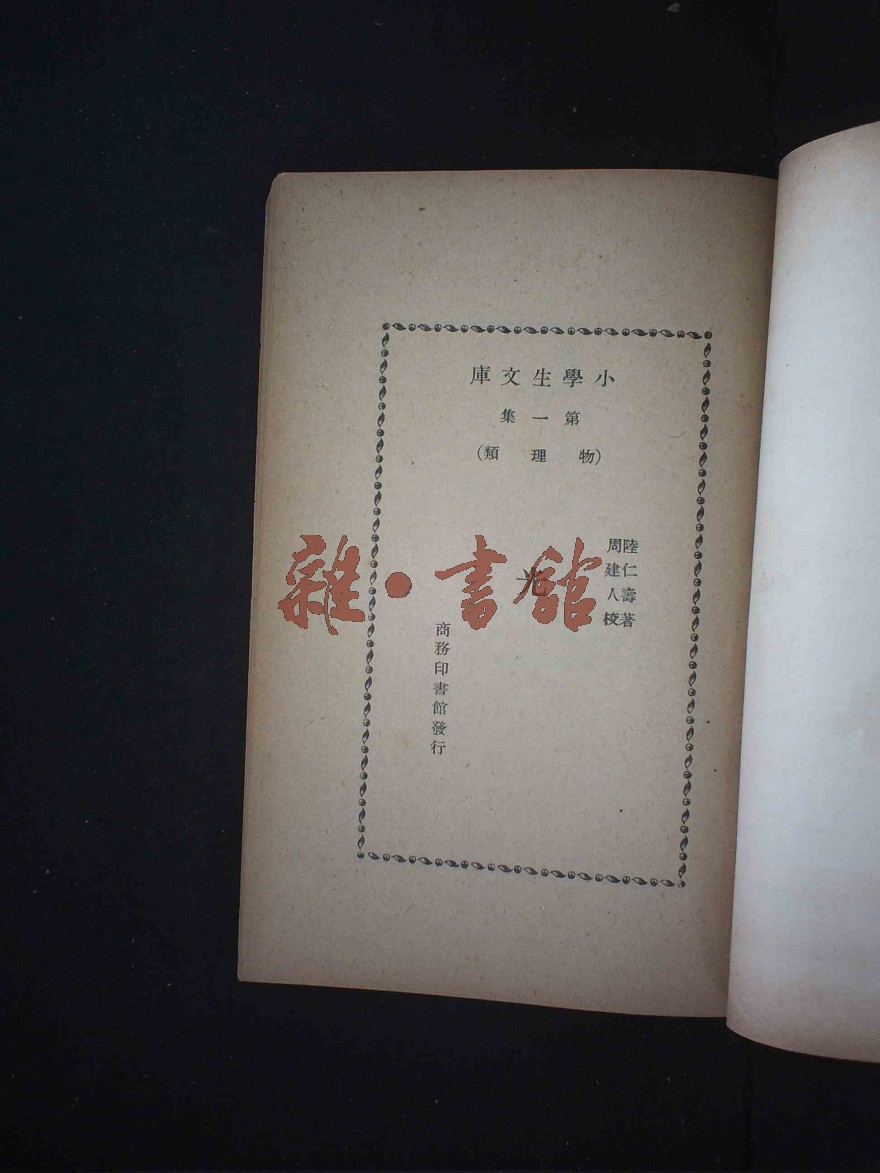 小學生文庫
第一集
(物理類)
陸仁壽著
周建人校
光
商務印書館發行
雜·書館